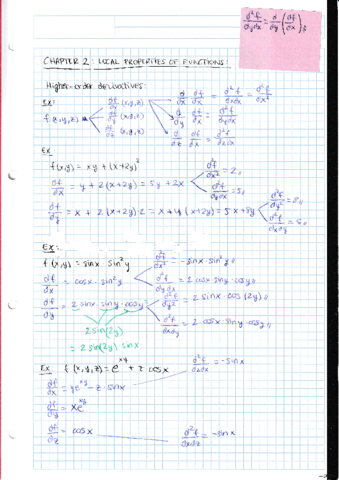 ∂²f/∂y∂x = ∂/∂y (∂f/∂x)
CHAPTER 2: LOCAL PROPERTIES OF FUNCTIONS:
Higher-order derivatives:
Ex:
f(x,y,z)
∂f/∂x (x,y,z)
∂f/∂y (x,y,z)
∂f/∂z (x,y,z)
∂/∂x ∂f/∂x = ∂²f/∂x∂x = ∂²f/∂x²
∂/∂y ∂f/∂x = ∂²f/∂y∂x
∂/∂z ∂f/∂x = ∂²f/∂z∂x
Ex
f(x,y) = xy + (x+2y)²
∂f/∂x = y + 2(x+2y) = 5y + 2x
∂²f/∂x² = 2
∂²f/∂y∂x = 5
∂f/∂y = x + 2(x+2y)·2 = x + 4(x+2y) = 5x + 8y
∂²f/∂y² = 8
∂²f/∂x∂y = 5
Ex:
f(x,y) = sinx · sin²y
∂f/∂x = cosx · sin²y
∂²f/∂x² = -sinx · sin²y
∂²f/∂y∂x = 2 cosx · siny · cosy
∂f/∂y = 2 sinx · siny · cosy
∂²f/∂y² = 2 sinx · cos(2y)
∂²f/∂x∂y = 2 cosx · siny · cosy
2sin(2y)
= 2sin(2y) sinx
Ex f(x,y,z) = e^xy + z cosx
∂²f/∂z∂x = -sinx
∂f/∂x = ye^xy - z·sinx
∂f/∂y = xe^xy
∂f/∂z = cosx
∂²f/∂x∂z = -sinx